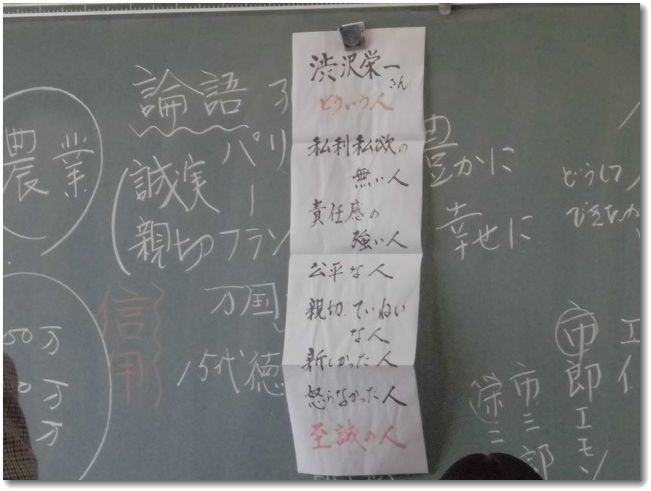 渋沢栄一
さん
どういう人
私利私欲の
無い人
責任感の
強い人
公平な人
親切、ていねい
な人
新しかった人
怒らなかった人
至誠の人
論語
パリ
ー
誠実
親切フラン
万国
15代徳
信用
農業
万
50万
0万
豊かに
幸せに
どうして
できたか
市郎エモン
市三郎
栄三